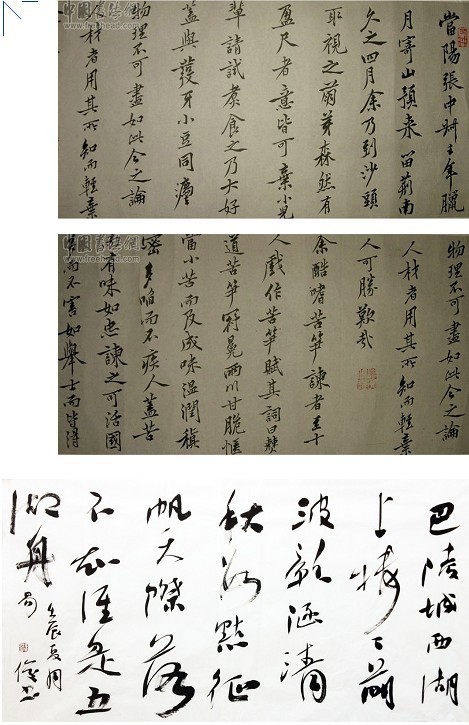 中国書法網
www.freehead.com
當陽張中叔去年臘
月寄山預來留荊南
久之四月余乃到沙頭
取視之萌芽森然有
盈尺者意皆可棄小兒
輩請試煮食之乃大好
蓋與發牙小豆同灋
物理不可盡如此今之論
人材者用其所知而輕棄
中国書法網
www.freehead.com
物理不可盡如此今之論
人材者用其所知而輕棄
人可勝歎哉
余酷嗜苦笋諫者至十
人戲作苦笋賦其詞曰僰
道苦笋冠冕兩川甘脆愜
當小苦而反成味溫潤稹
密多啗而不疾人蓋苦
而有味如忠諫之可活國
多而不害如舉士而皆得
巴陵城西湖
上樓樓前
波影涵清
秋數點征
帆天際落
不知誰是五
湖舟
壬辰夏周